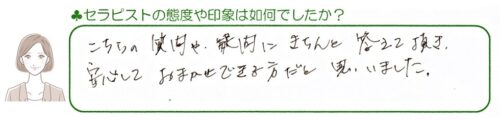 ♣セラピストの態度や印象は如何でしたか？
こちらの質問や、疑問にきちんと答えて頂き、
安心しておまかせできる方だと思いました。